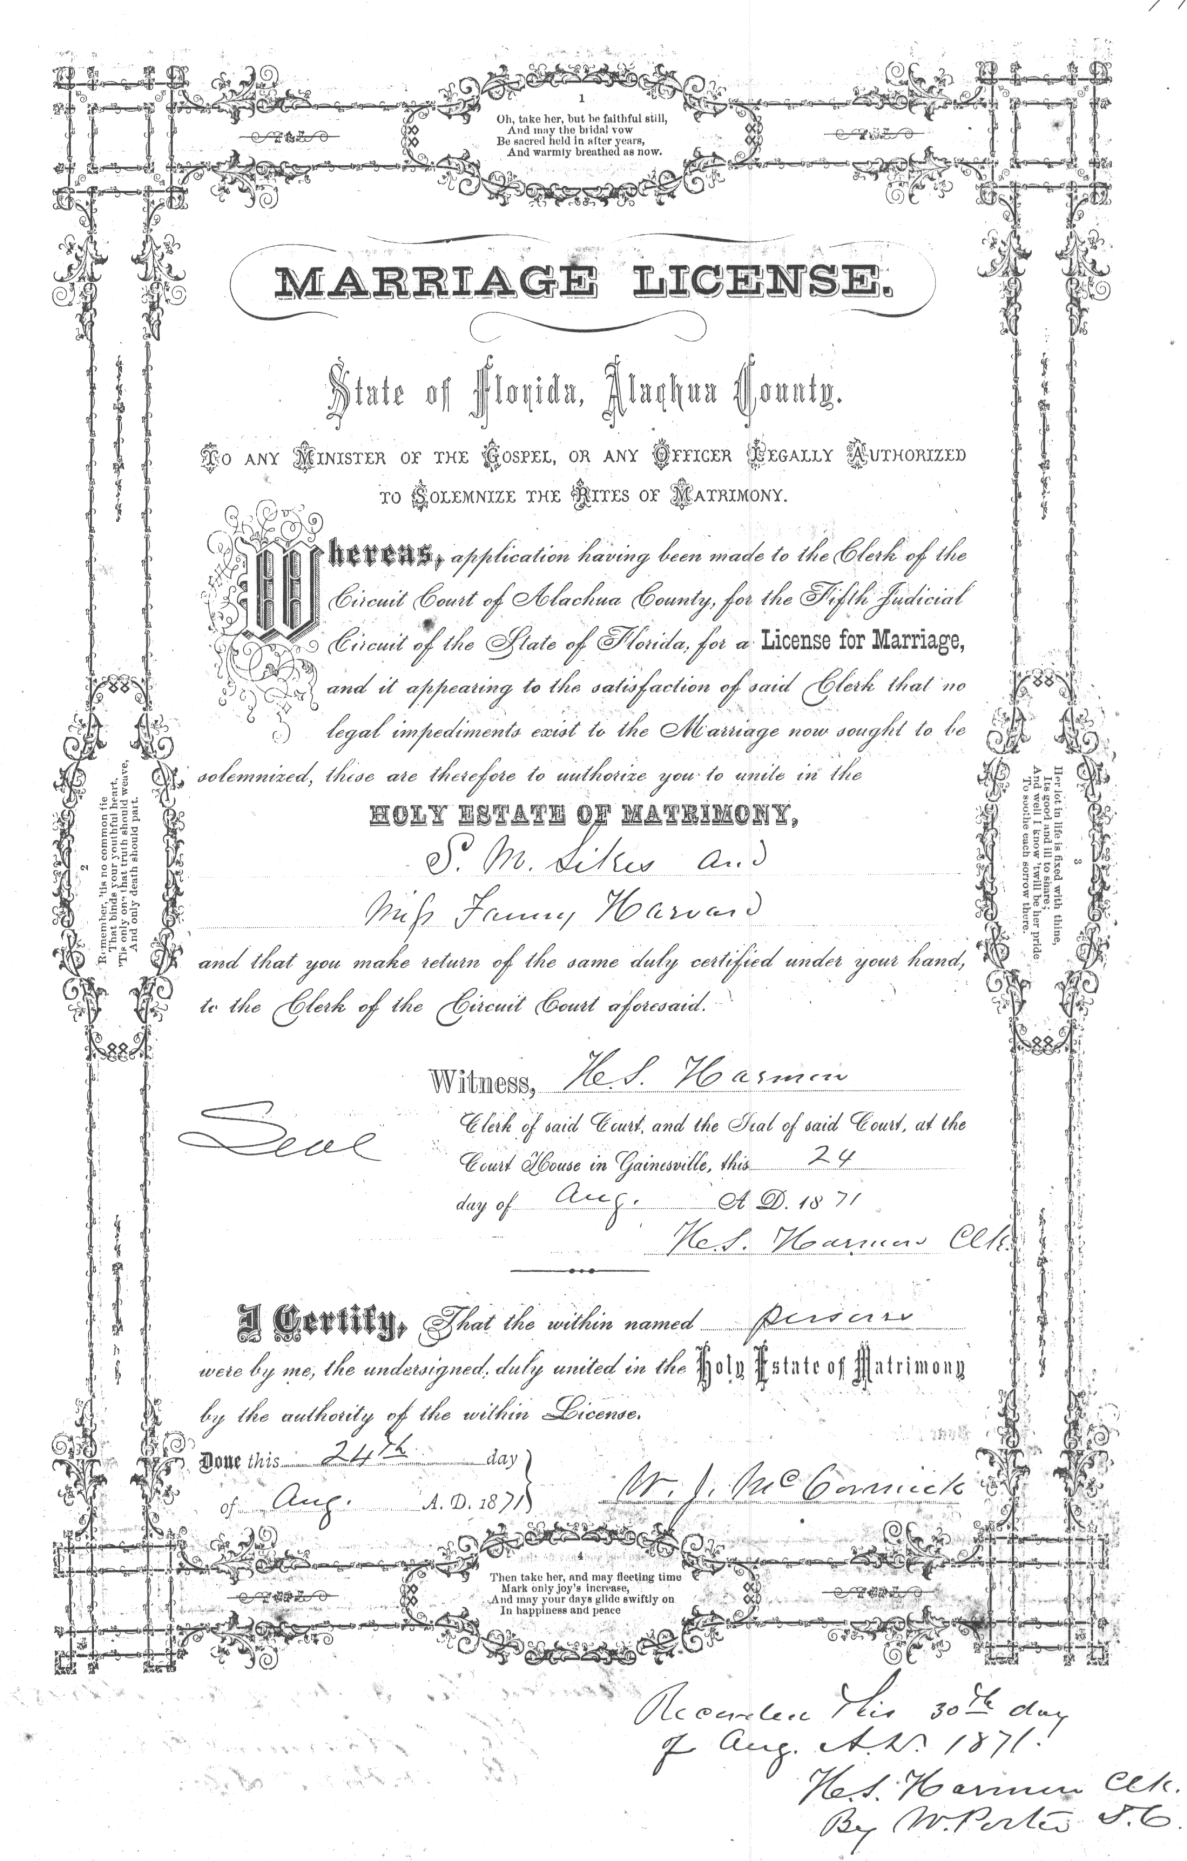 1
Oh, take her, but be faithful still,
And may the bridal vow
Be sacred held in after years,
And warmly breathed as now.
MARRIAGE LICENSE.
State of Florida, Alachua County.
TO ANY MINISTER OF THE GOSPEL, OR ANY OFFICER LEGALLY AUTHORIZED
TO SOLEMNIZE THE RITES OF MATRIMONY.
Whereas, application having been made to the Clerk of the
Circuit Court of Alachua County, for the Fifth Judicial
Circuit of the State of Florida, for a License for Marriage,
and it appearing to the satisfaction of said Clerk that no
legal impediments exist to the Marriage now sought to be
solemnized, these are therefore to authorize you to unite in the
HOLY ESTATE OF MATRIMONY,
S. M. Sikes and
Miss Fanny Harvard
and that you make return of the same duly certified under your hand,
to the Clerk of the Circuit Court aforesaid.
2
Remember, 'tis no common tie
That binds your youthful heart,
'Tis only one that truth should weave,
And only death should part.
3
Her lot in life is fixed with thine,
Its good and ill to share;
And well I know 'twill be her pride
To soothe each sorrow there.
Witness, H. S. Harmon
Seal
Clerk of said Court, and the Seal of said Court, at the
Court House in Gainesville, this 24
day of Aug. A D. 1871
H. S. Harmon Clk.
I Certify, That the within named persons
were by me, the undersigned, duly united in the Holy Estate of Matrimony
by the authority of the within License.
Done this 24th day
of Aug. A. D. 1871
W. J. McCormick
4
Then take her, and may fleeting time
Mark only joy's increase,
And may your days glide swiftly on
In happiness and peace
Recorded this 30th day
of Aug. A.D. 1871.
H. S. Harmon Clk.
By W. Porter D.C.